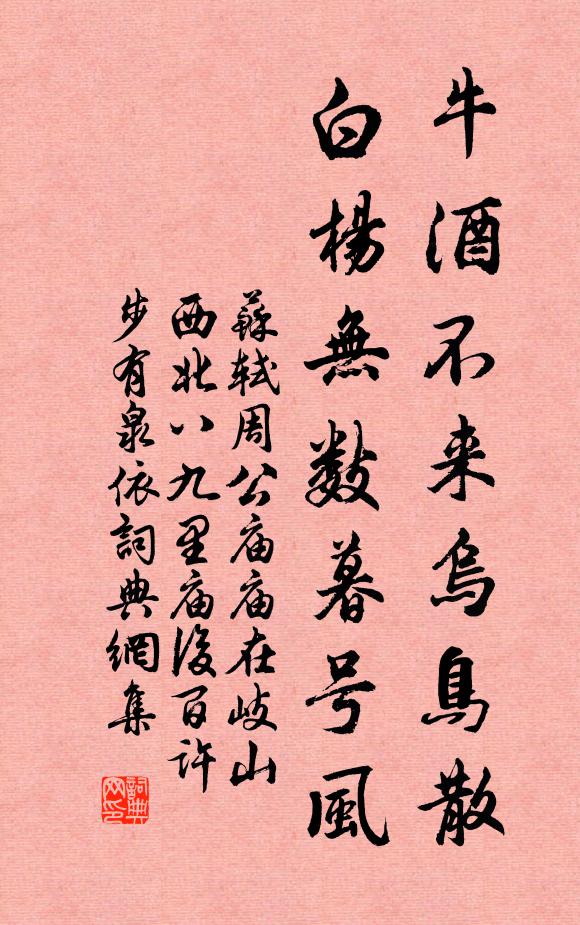 牛酒不来烏鳥散
白楊無數暮号風
蘇軾周公庙庙在岐山
西北八九里庙後百許
步有泉依詞典網集
詞典網印